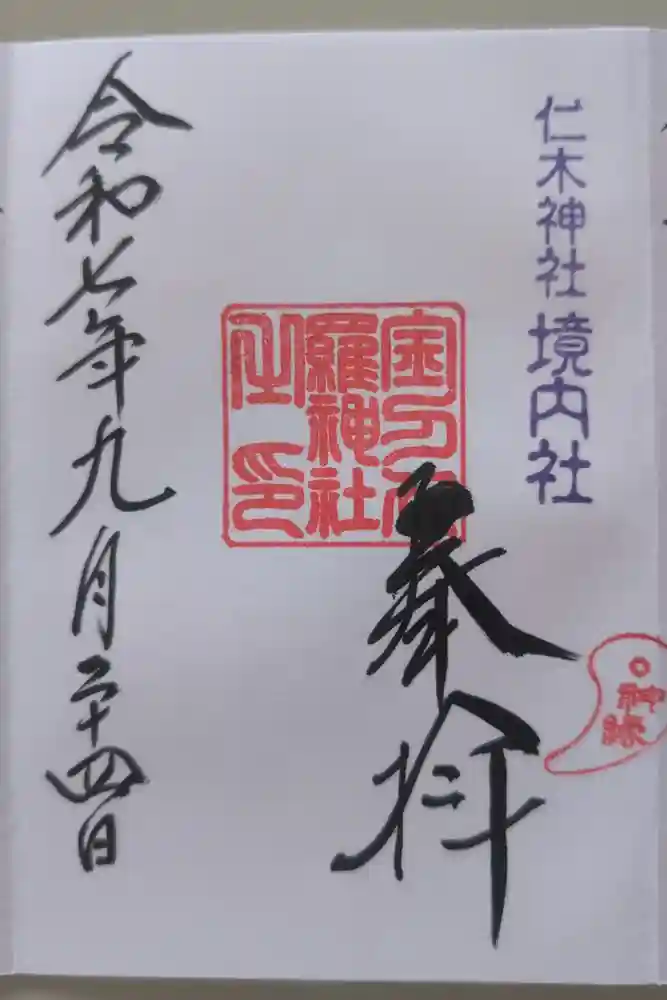 仁木神社境内社
奉拝
神
縁
金刀比
羅神社
之印
令和七年九月二十四日